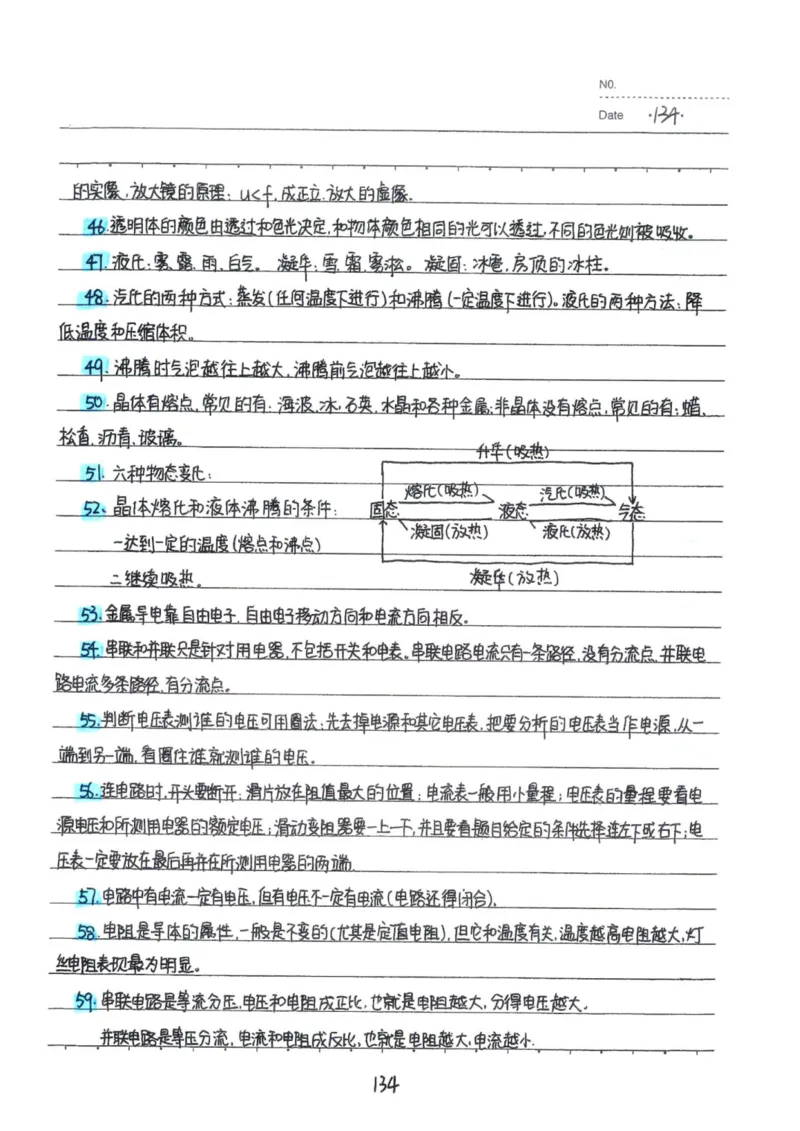 N0.
Date ·134·
的实像,放大镜的原理:u<f,成正立.放大的虚像.
46.透明体的颜色由透过和色光决定,和物体颜色相同的光可以透过,不同的色光则被吸收。
47.液化:雾、露、雨、白气。凝华:雪,霜,雾淞。凝固:冰雹,房顶的冰柱。
48.汽化的两种方式:蒸发(任何温度下进行)和沸腾(一定温度下进行)。液化的两种方法:降
低温度和压缩体积。
49.沸腾时气泡越往上越大,沸腾前气泡越往上越小。
50.晶体有熔点,常见的有:海波,冰,石英,水晶和各种金属;非晶体没有熔点,常见的有:蜡、
松香,沥青,玻璃。
升华(吸热)
51.六种物态变化:
熔化(吸热) 汽化(吸热)
52、晶体熔化和液体沸腾的条件: 固态 液态 气态
凝固(放热) 液化(放热)
一达到一定的温度(熔点和沸点)
二继续吸热。 凝华(放热)
53.金属导电靠自由电子,自由电子移动方向和电流方向相反。
54.串联和并联只是针对用电器,不包括开关和电表。串联电路电流只有一条路径,没有分流点,并联电
路电流多条路径,有分流点。
55.判断电压表测谁的电压可用圈法:先去掉电源和其它电压表,把要分析的电压表当作电源,从一
端到另一端,看圈住谁就测谁的电压。
56.连电路时,开关要断开;滑片放在阻值最大的位置;电流表一般用小量程;电压表的量程要看电
源电压和所测用电器的额定电压;滑动变阻器要一上一下,并且要看题目给定的条件先择连左下或右下;电
压表一定要放在最后再并在所测用电器的两端.
57.电路中有电流一定有电压,但有电压不一定有电流(电路还得闭合).
58.电阻是导体的属性,一般是不变的(尤其是定值电阻),但它和温度有关,温度越高电阻越大,灯
丝电阻表现最为明显。
59.串联电路是等流分压,电压和电阻成正比,也就是电阻越大,分得电压越大.
并联电路是等压分流,电流和电阻成反比,也就是电阻越大,电流越小.
134